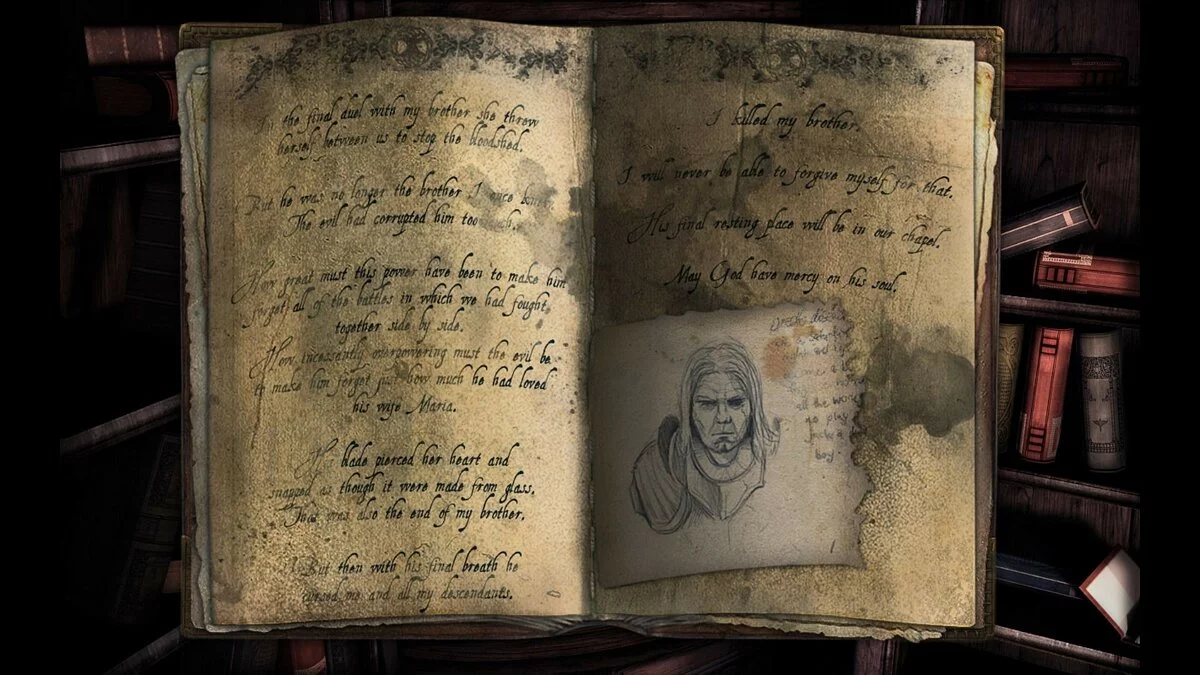 In the final duel with my brother she threw
herself between us to stop the bloodshed.
But he was no longer the brother I once knew.
The evil had corrupted him too much.
How great must this power have been to make him
forget all of the battles in which we had fought
together side by side.
How incessantly overpowering must the evil be
to make him forget just how much he had loved
his wife Maria.
blade pierced her heart and
snapped as though it were made from glass.
This was also the end of my brother.
But then with his final breath he
cursed me and all my descendants.
I killed my brother.
I will never be able to forgive myself for that.
His final resting place will be in our chapel.
May God have mercy on his soul.
all the
play
a
boy